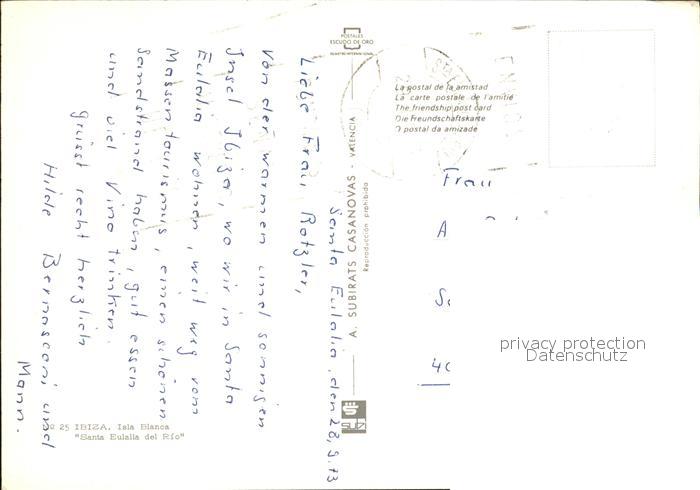 Santa Eulalia, den 28.9.73
Liebe Frau Rotzler,
Von der warmen und sonnigen
Insel Ibiza, wo wir in Santa
Eulalia wohnen, weit weg vom
Massentourismus, einen schönen
Sandstrand haben, gut essen
und viel Vino trinken.
grüsst recht herzlich
Hilde Bernasconi und
Mann.
Nº 25 IBIZA. Isla Blanca
"Santa Eulalia del Río"
POSTALES
ESCUDO DE ORO
A. SUBIRATS CASANOVAS - VALENCIA
Reproducción prohibida
subi
La postal de la amistad
La carte postale de l'amitie
The friendship post card
Die Freundschaftskarte
O postal da amizade
Frau
A
S
40
privacy protection
Datenschutz